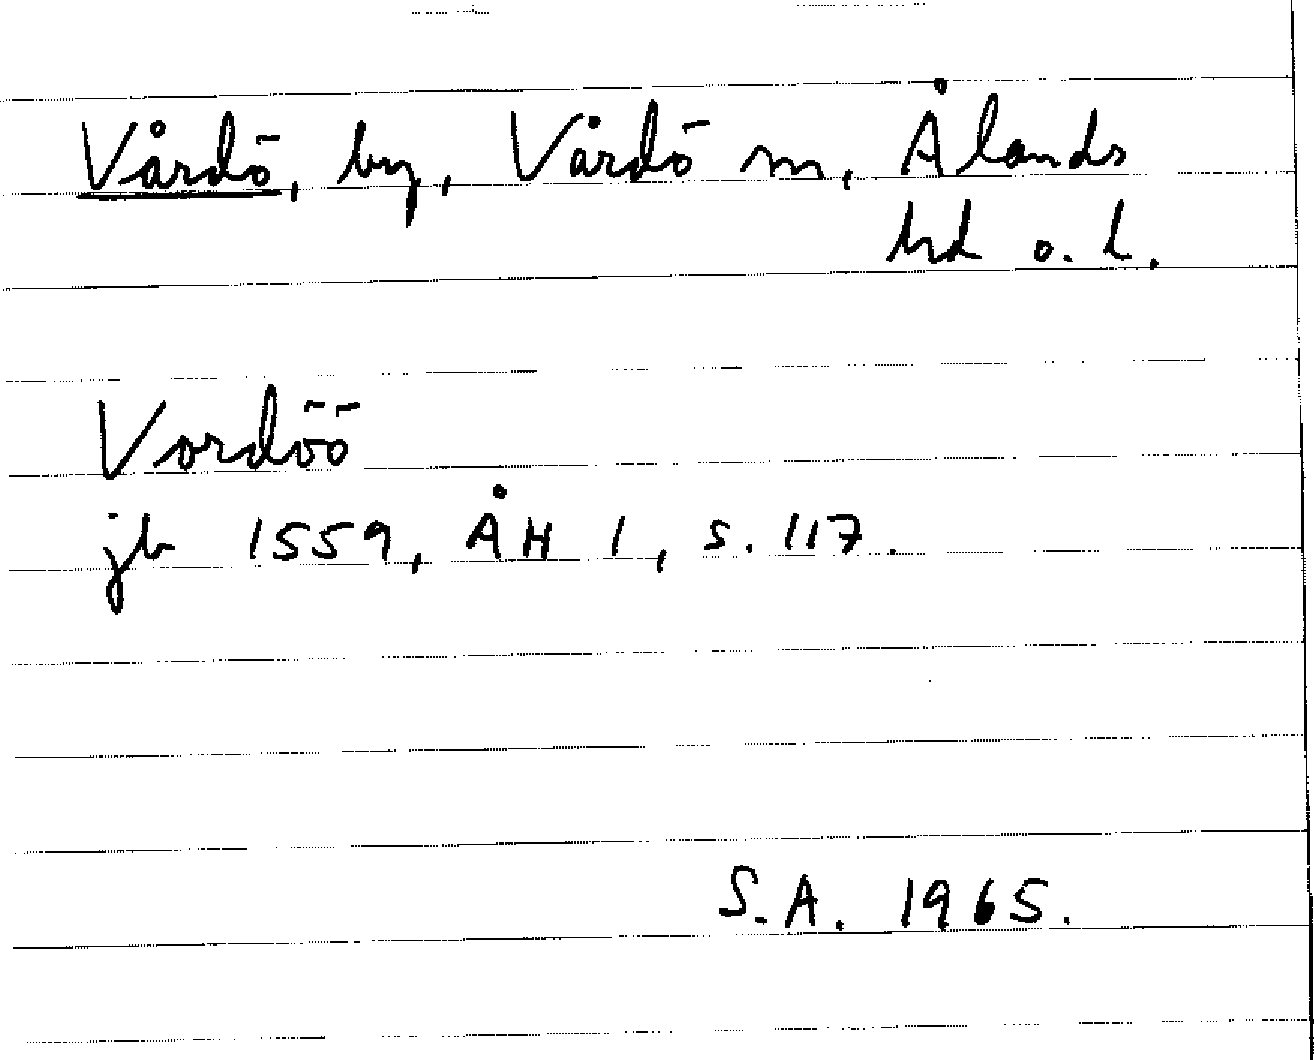 Vårdö, by, Vårdö sn, Ålands
hd o. l.
Vordöö
jb 1559, ÅH 1, s. 117.
S.A. 1965.